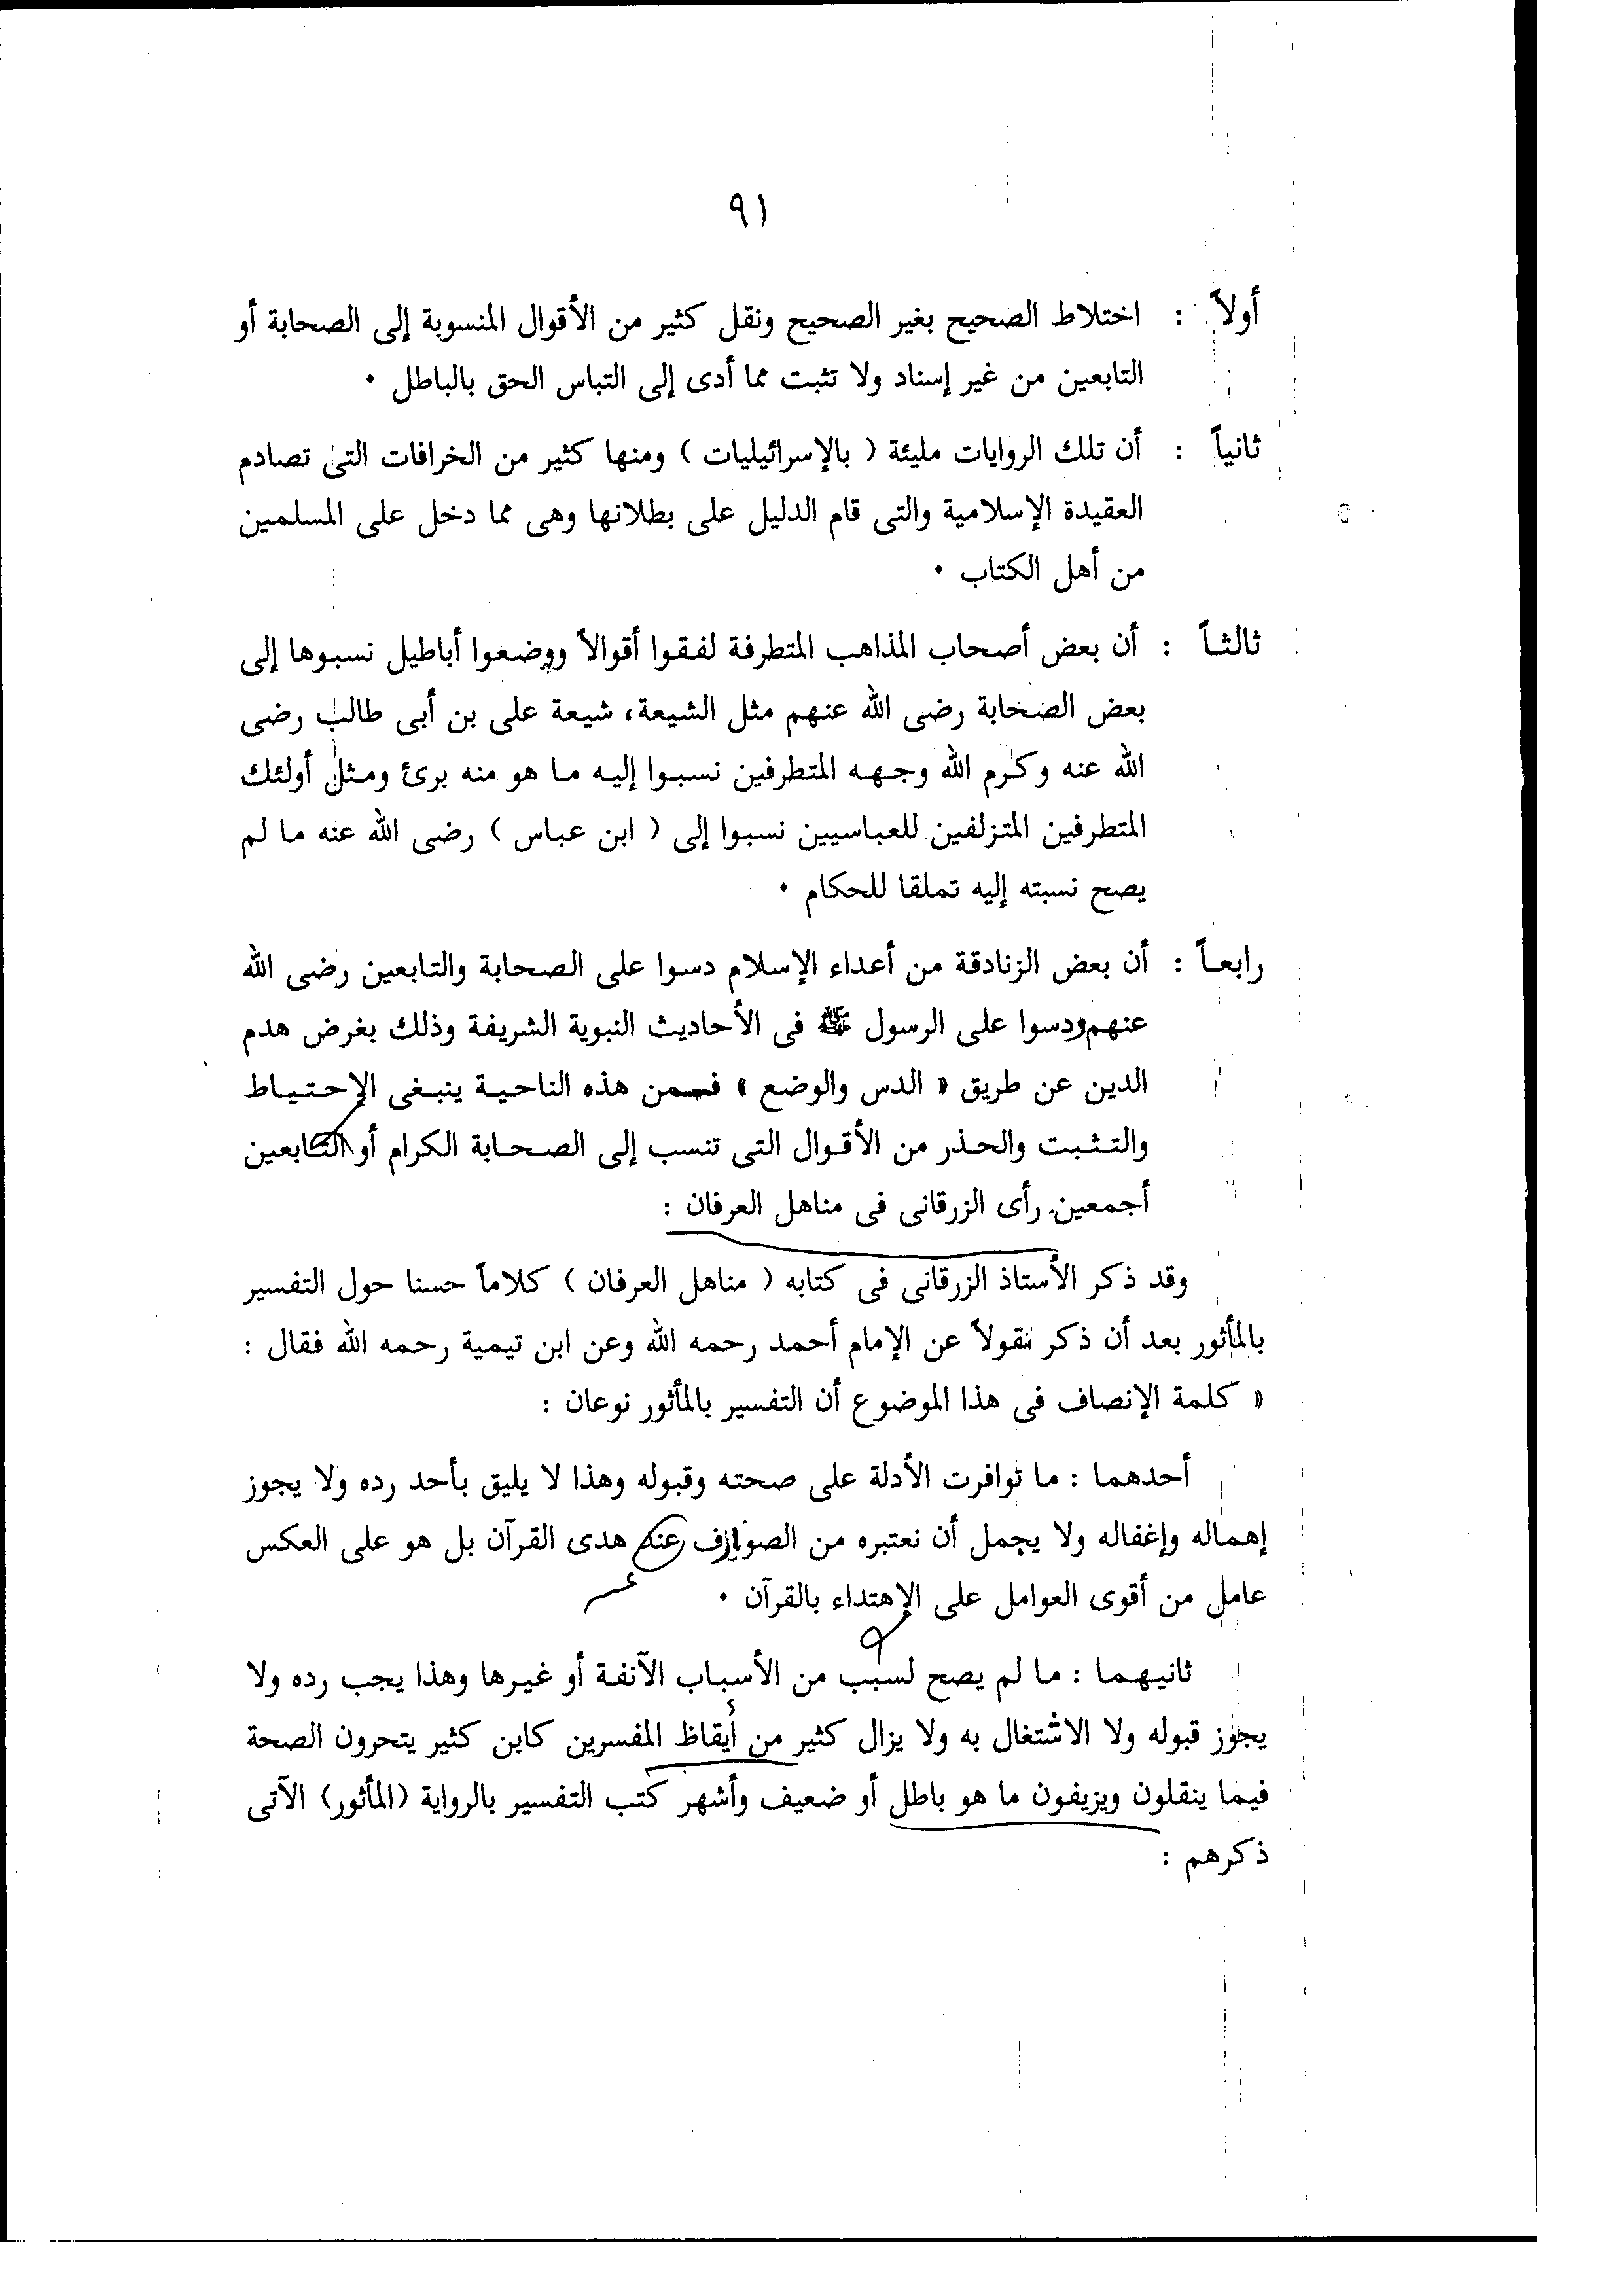 ٩١
أولاً : اختلاط الصحيح بغير الصحيح ونقل كثير من الأقوال المنسوبة إلى الصحابة أو
التابعين من غير إسناد ولا تثبت مما أدى إلى التباس الحق بالباطل ٠
ثانياً : أن تلك الروايات مليئة ( بالإسرائيليات ) ومنها كثير من الخرافات التى تصادم
العقيدة الإسلامية والتى قام الدليل على بطلانها وهى مما دخل على المسلمين
من أهل الكتاب ٠
ثالثاً : أن بعض أصحاب المذاهب المتطرفة لفقوا أقوالاً ووضعوا أباطيل نسبوها إلى
بعض الصحابة رضى الله عنهم مثل الشيعة، شيعة على بن أبى طالب رضى
الله عنه وكرم الله وجهه المتطرفين نسبوا إليه ما هو منه برئ ومثل أولئك
المتطرفين المتزلفين للعباسيين نسبوا إلى ( ابن عباس ) رضى الله عنه ما لم
يصح نسبته إليه تملقا للحكام ٠
رابعاً : أن بعض الزنادقة من أعداء الإسلام دسوا على الصحابة والتابعين رضى الله
عنهم ودسوا على الرسول ﷺ فى الأحاديث النبوية الشريفة وذلك بغرض هدم
الدين عن طريق « الدس والوضع » فمن هذه الناحية ينبغى الإحتياط
والتثبت والحذر من الأقوال التى تنسب إلى الصحابة الكرام أو التابعين
أجمعين. رأى الزرقانى فى مناهل العرفان :
وقد ذكر الأستاذ الزرقانى فى كتابه ( مناهل العرفان ) كلاماً حسنا حول التفسير
بالمأثور بعد أن ذكر نقولاً عن الإمام أحمد رحمه الله وعن ابن تيمية رحمه الله فقال :
« كلمة الإنصاف فى هذا الموضوع أن التفسير بالمأثور نوعان :
أحدهما : ما توافرت الأدلة على صحته وقبوله وهذا لا يليق بأحد رده ولا يجوز
إهماله وإغفاله ولا يجمل أن نعتبره من الصوارف عنه هدى القرآن بل هو على العكس
عامل من أقوى العوامل على الإهتداء بالقرآن ٠
ثانيهما : ما لم يصح لسبب من الأسباب الآنفة أو غيرها وهذا يجب رده ولا
يجوز قبوله ولا الاشتغال به ولا يزال كثير من أيقاظ المفسرين كابن كثير يتحرون الصحة
فيما ينقلون ويزيفون ما هو باطل أو ضعيف وأشهر كتب التفسير بالرواية (المأثور) الآتى
ذكرهم :